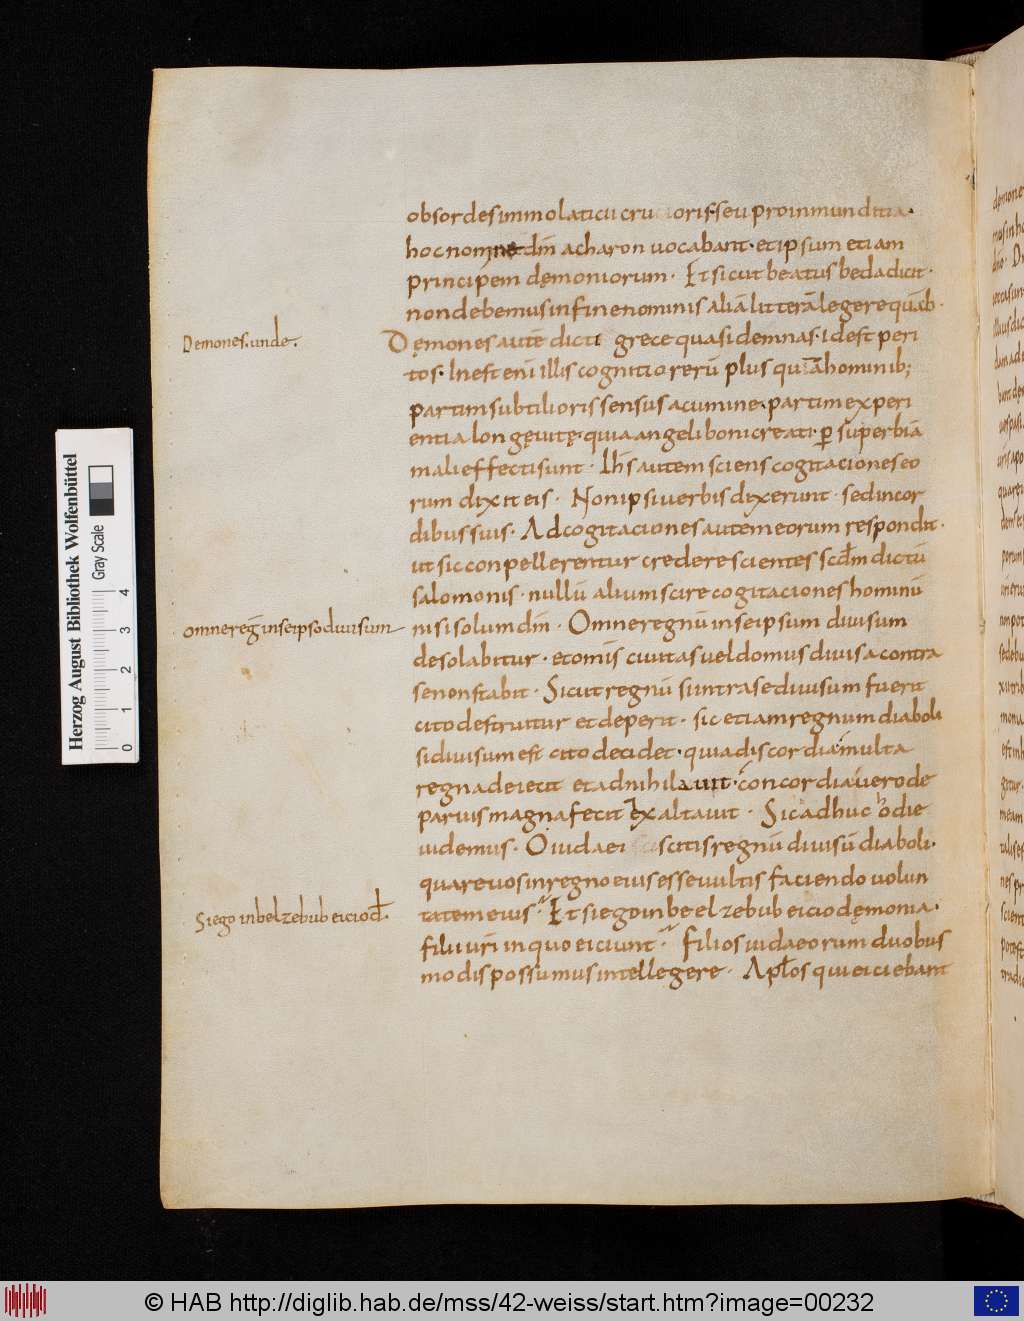 ob sordes immolaticii cru oris. seu pro inmunditia.
hoc nomine dm̄ acharon uocabant. et ipsum etiam
principem dęmoniorum. Et sicut beatus beda dicit.
non debemus in fine nominis aliā litterā legere quā b.
Demones. unde.
Dęmones autē dicti grece quasi demnas. idest peri
tos. Inest eni illis cognitio rerū plus quā hominib;
partim subtilioris sensus acumine. partim experi
entia longęuitę. quia angeli boni creati. ꝑ superbiā
mali effecti sunt. Ihs autem sciens cogitaciones eo
rum dixit eis. Non ipsi uerbis dixerunt. sed in cor
dibus suis. Ad cogitaciones autem eorum respondit.
ut sic conpellerentur credere scientes scdm dictū
salomonis. nullū alium scire cogitaciones hominū
omne regn̄ in seipso diuisum
nisi solum dm̄. Omne regnū in seipsum diuisum
desolabitur. et omīs ciuitas uel domus diuisa contra
se non stabit. Sicut regnū suntra se diuisum fuerit
cito destruitur et deperit. sic etiam regnum diaboli
si diuisum est cito decidet. quia discordia multa
regna deiecit et adnihilauit. concordia uero de
paruis magna fecit et exaltauit. Sic adhuc hodie
uidemus. O iudaei scitis regnū diuisū diaboli.
quare uos in regno eius esse uultis faciendo uolun
Si ego in belzebub eicio d.
tatem eius. Et si ego in beelzebub eicio dęmonia.
filii uri in quo eiciunt. Filios iudaeorum duobus
modis possumus intellegere. Aplos qui eiciebant
Herzog August Bibliothek Wolfenbüttel
Gray Scale
0 1 2 3 4
© HAB http://diglib.hab.de/mss/42-weiss/start.htm?image=00232